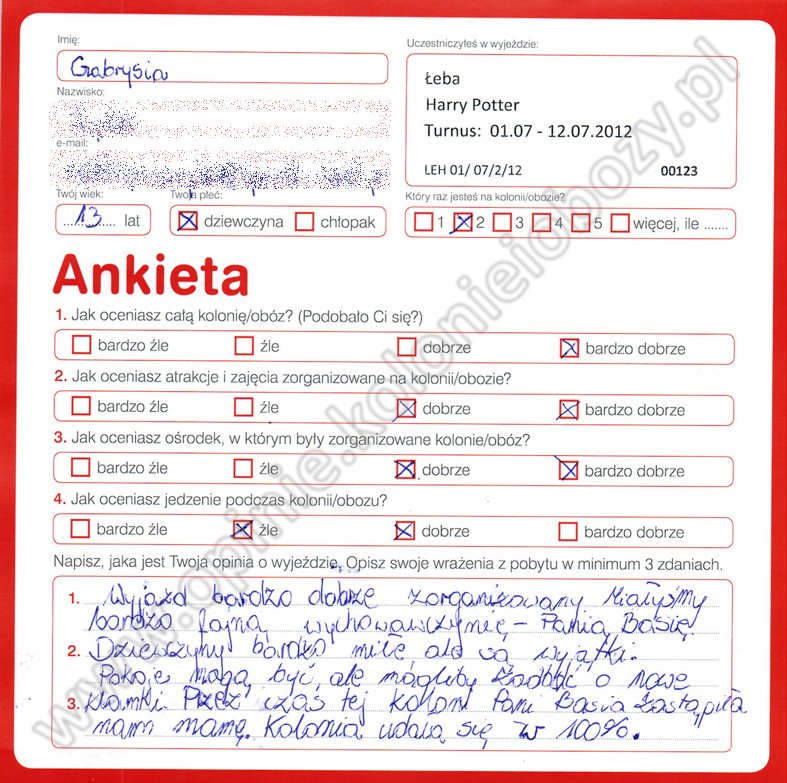 Imię:
Gabrysia
Nazwisko:
e-mail:
Twój wiek:
13 lat
Twoja płeć:
dziewczyna chłopak
Uczestniczyłeś w wyjeździe:
Łeba
Harry Potter
Turnus: 01.07 - 12.07.2012
LEH 01/ 07/2/12 00123
Który raz jesteś na kolonii/obozie?
1 2 3 4 5 więcej, ile .......
Ankieta
1. Jak oceniasz całą kolonię/obóz? (Podobało Ci się?)
bardzo źle źle dobrze bardzo dobrze
2. Jak oceniasz atrakcje i zajęcia zorganizowane na kolonii/obozie?
bardzo źle źle dobrze bardzo dobrze
3. Jak oceniasz ośrodek, w którym były zorganizowane kolonie/obóz?
bardzo źle źle dobrze bardzo dobrze
4. Jak oceniasz jedzenie podczas kolonii/obozu?
bardzo źle źle dobrze bardzo dobrze
Napisz, jaka jest Twoja opinia o wyjeździe. Opisz swoje wrażenia z pobytu w minimum 3 zdaniach.
1. Wyjazd bardzo dobrze zorganizowany. Miałyśmy
bardzo fajną wychowawczynię - Panią Basię.
2. Dziewczyny bardzo miłe ale są wyjątki.
Pokoje mogą być, ale mogliby zadbać o nowe
3. klamki Przez czas tej koloni Pani Basia zastąpiła
nam mamę. Kolonia udała się w 100%.
www.opinie.kolonieiobozy.pl